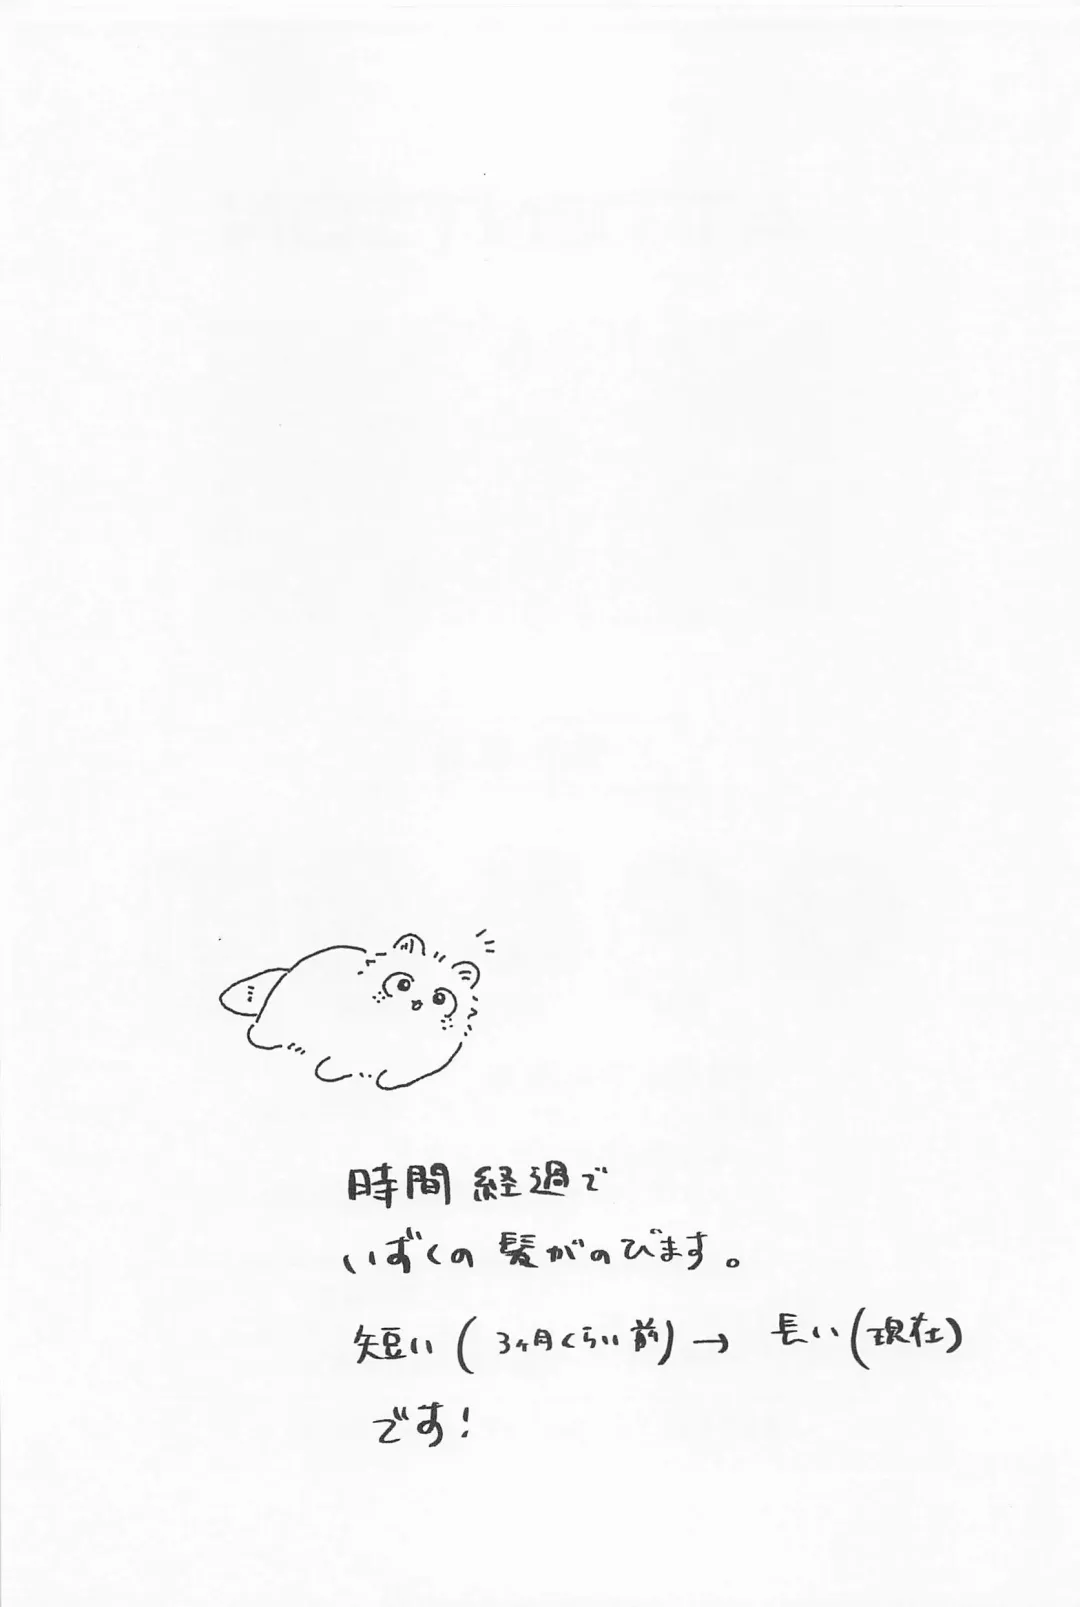 時間経過で
いずくの髪がのびます。
短い(3ヶ月くらい前)→長い(現在)
です!